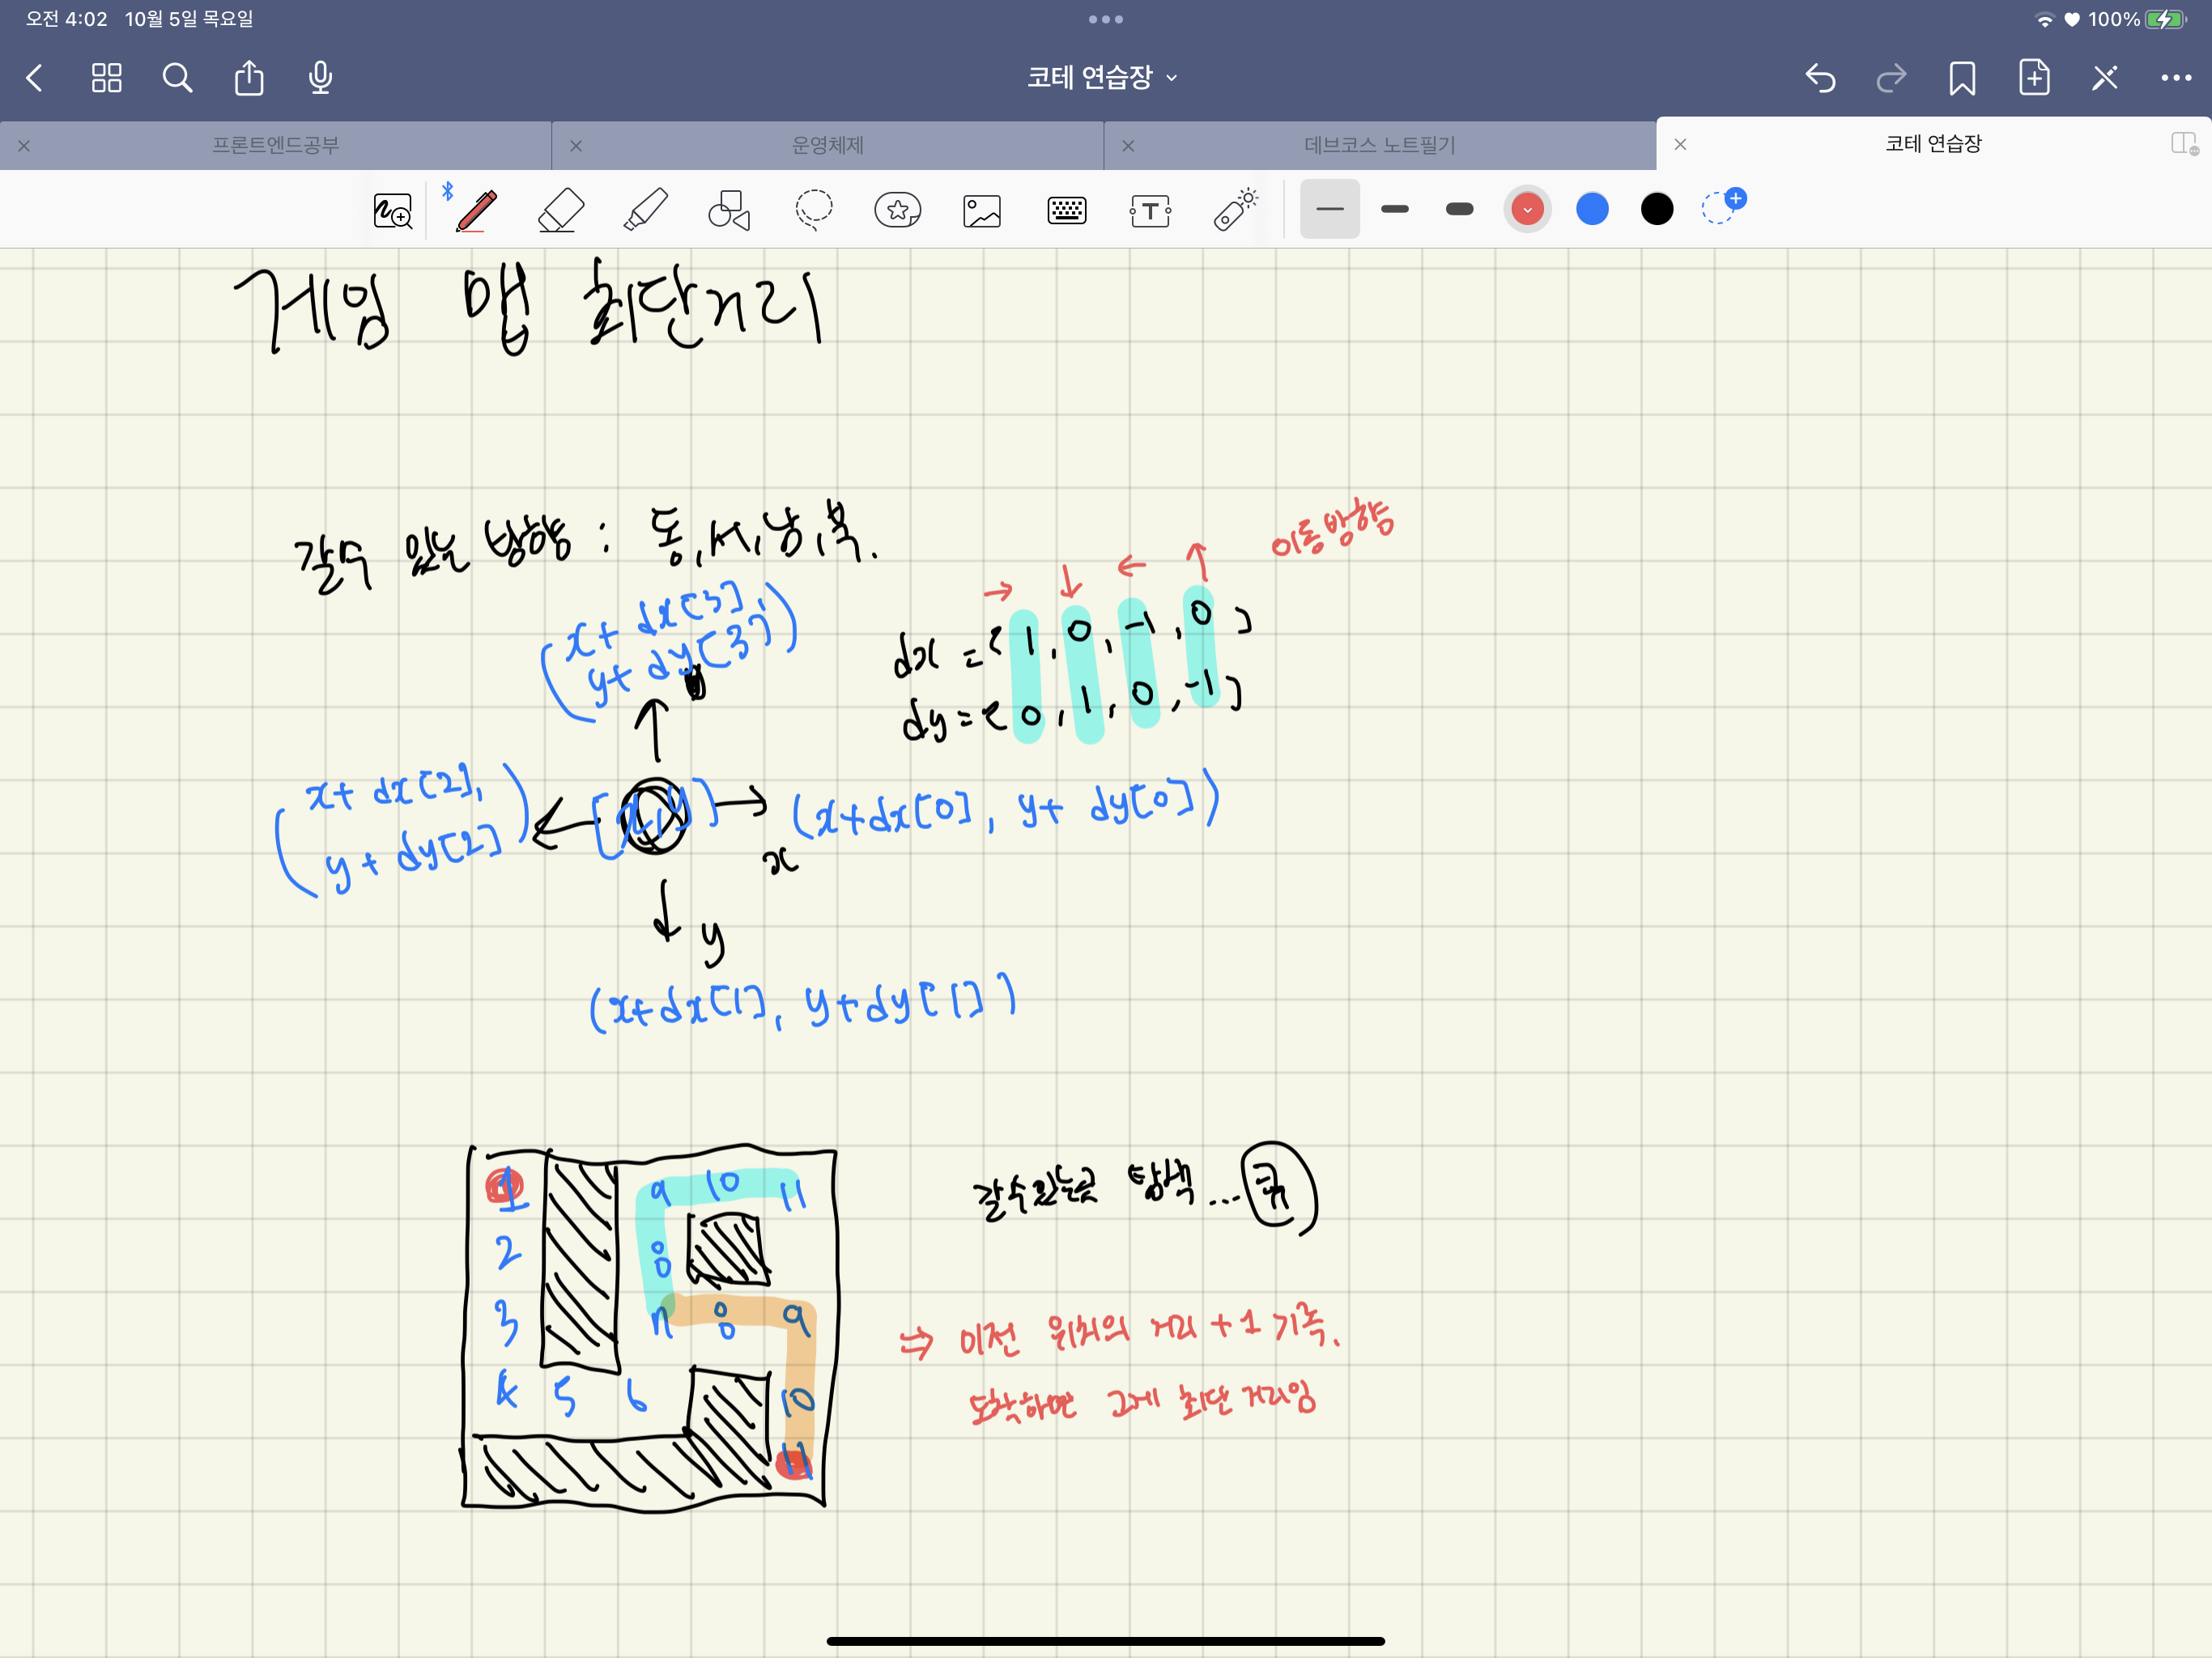 오전 4:02 10월 5일 목요일
100%
코테 연습장
프론트엔드공부
운영체제
데브코스 노트필기
코테 연습장
게임 맵 최단거리
갈 수 있는 방향 : 동, 서, 남, 북.
이동방향
→ ↓ ← ↑
dx = [1, 0, -1, 0]
dy = [0, 1, 0, -1]
(x+ dx[3],
y+ dy[3])
(x+ dx[2],
y+ dy[2])
[x, y]
(x+dx[0], y+ dy[0])
x
y
(x+dx[1], y+dy[1])
1 9 10 11
2 8
3 7 8 9
4 5 6 10
11
탐색... 큐
⇒ 이전 위치의 거리 +1 기록.
도착하면 그게 최단거리임